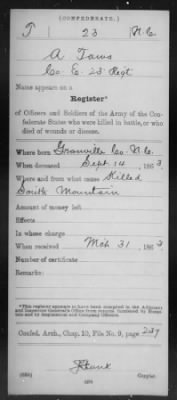 (CONFEDERATE.)
T 23 N.C.
A Taws
Co. E. 23 Regt
Name appears on a
Register*
of Officers and Soldiers of the Army of the Confederate States who were killed in battle, or who
died of wounds or disease.
Where born Granville Co. N.C.
When deceased Sept. 14, 1863
Where and from what cause Killed
South Mountain
Amount of money left
Effects
In whose charge
When received Mch 31 1863
Number of certificate
Remarks:
*This register appears to have been compiled in the Adjutant
and Inspector General's Office from reports furnished by Hospitals and by Regimental and Company Officers.
Confed. Arch., Chap. 10, File No. 9, page 237
Copyist.